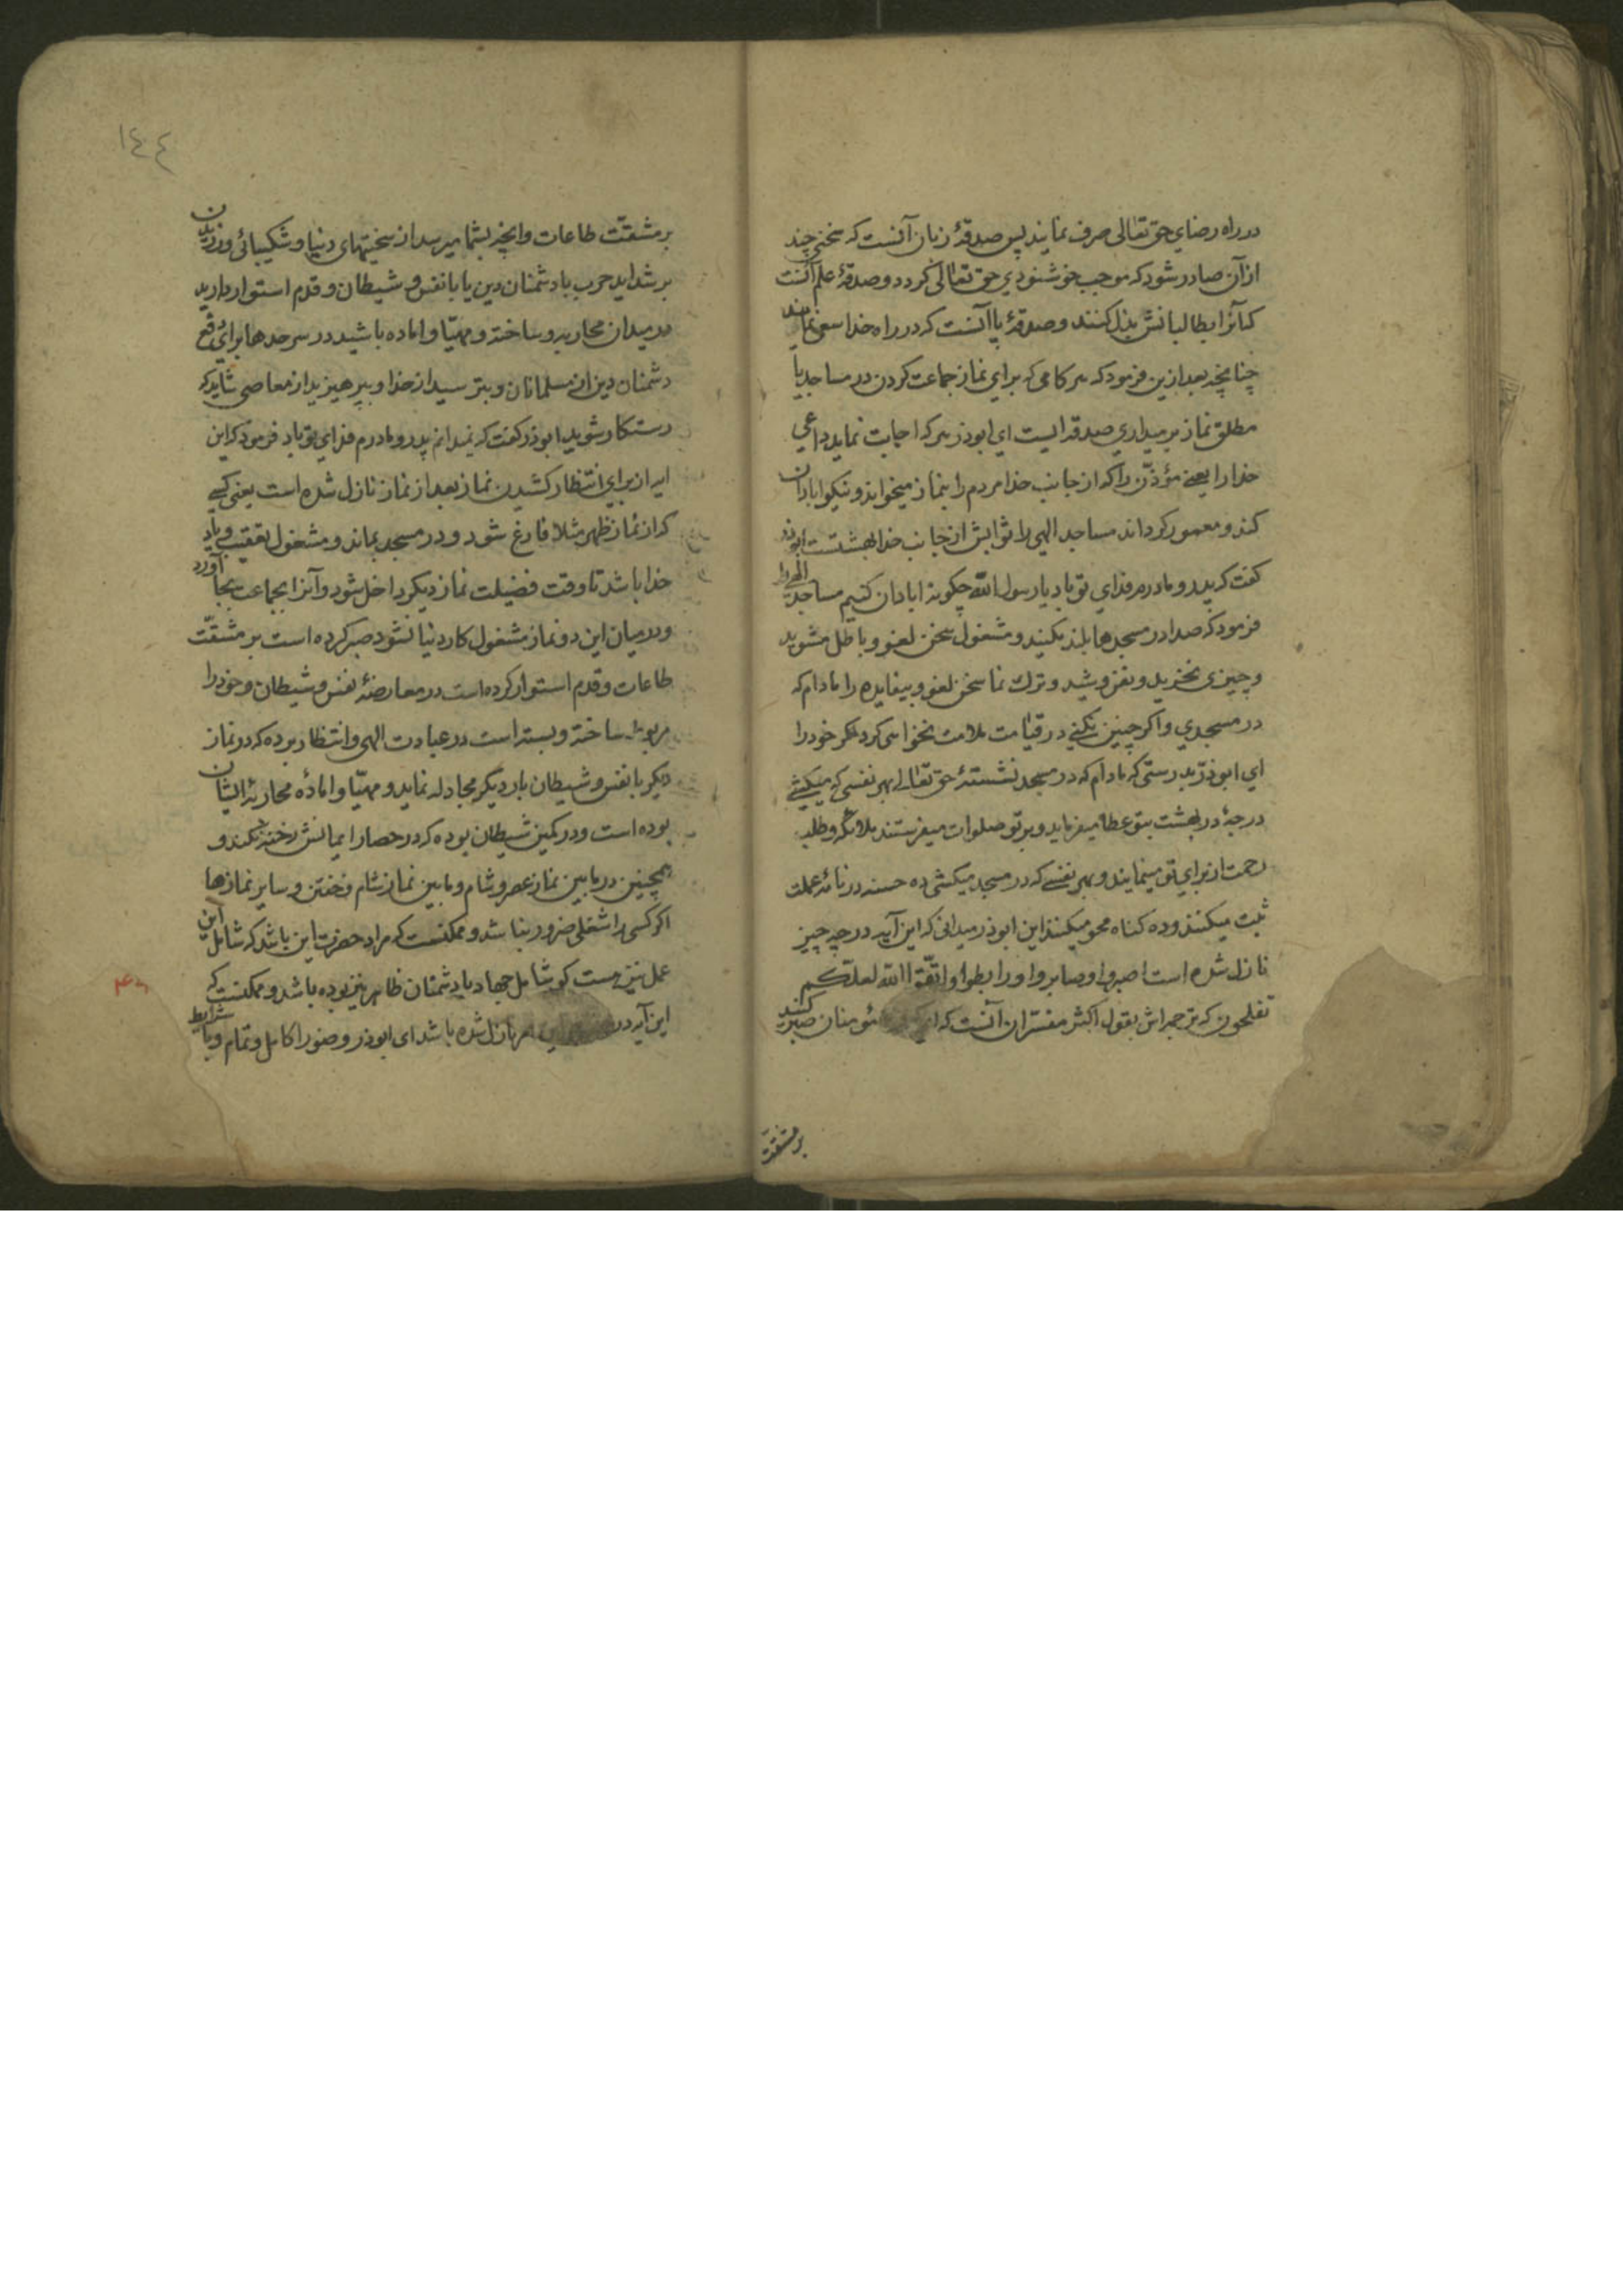 در راه رضای حق تعالی صرف نمایند پس صدقهٔ زبان آنست که سخنی چند
از آن صادر شود که موجب خوشنودی حق تعالی کردد و صدقهٔ علم آنست
که آنرا بطالبانش بذل کنند و صدقهٔ پا آنست که در راه خدا سعی نمایند
چنانچه بعد ازین فرمود که هر کامی که برای نماز جماعت کردن در مساجد یا
مطلق نماز برمیداری صدقه ایست ای ابوذر هر که اجابت نماید داعی
خدا را یعنی مؤذّن را که از جانب خدا مردم را بنماز میخواند و نیکو ابادان
کند و معمور کرداند مساجد الهی را ثوابش از جانب خدا بهشتست ابوذر
کفت که پدر و مادرم فدای تو باد یا رسول الله چکونه ابادان کنیم مساجد الهی را
فرمود که صدا در مسجدها بلند نکنند و مشغول سخن لغو و باطل مشوید
و چیزی نخرید و نفروشید و ترك نما سخن لغو و بیفایده را مادام که
در مسجدی و اکر چنین نکنی در قیامت ملامت نخواهی کرد مکر خود را
ای ابوذر بدرستی که مادام که در مسجد نشستهٔ حق تعالی بهر نفسی که میکشی
درجهٔ در بهشت بتو عطا میفرماید و بر تو صلوات میفرستند ملائکه و طلب
رحمت از برای تو مینمایند و بهر نفسی که در مسجد میکشی ده حسنه در نامهٔ عملت
ثبت میکنند و ده کناه محو میکنند این ابوذر میدانی که این آیه در چه چیز
نازل شده است اصبروا وصابروا ورابطوا واتّقوا الله لعلّکم
تفلحون که ترجمه اش بقول اکثر مفسّران آنست که ای مؤمنان صبر کنید
بر مشقت
١٤٤
بر مشقّت طاعات و انچه بشما میرسد از سختیهای دنیا و شکیبائی ورزیدن
بر شداید حرب با دشمنان دین یا با نفس و شیطان و قدم استوار دارید
در میدان محاربه و ساخته و مهیّا و اماده باشید در سرحدها برای دفع
دشمنان دین از مسلمانان و بترسید از خدا و بپرهیزید از معاصی شاید که
رستکار شوید ابوذر کفت که نمیدانم پدر و مادرم فدای تو باد فرمود که این
ایه از برای انتظار کشیدن نماز بعد از نماز نازل شده است یعنی کسی
که از نماز ظهر مثلا فارغ شود و در مسجد بماند و مشغول تعقیب و یاد
خدا باشد تا وقت فضیلت نماز دیکر داخل شود و آنرا بجماعت بجا آورد
و در میان این دو نماز مشغول کار دنیا نشود صبر کرده است بر مشقّت
طاعات و قدم استوار کرده است در معارضهٔ نفس و شیطان و خود را
مربوط ساخته و بسته است در عبادت الهی و انتظار برده که در نماز
دیکر با نفس و شیطان بار دیکر مجادله نماید و مهیّا و امادهٔ محاربهٔ ایشان
بوده است و در کمین شیطان بوده که در حصار ایمانش رخنه نکند و
همچنین در مابین نماز عصر و شام و مابین نماز شام و خفتن و سایر نمازها
اکر کسی را شغلی ضرور نباشد و ممکنست که مراد حضرت این باشد که شامل این
عمل نیز هست کو شامل جهاد با دشمنان ظاهر نیز بوده باشد و ممکنست که
این آیه در نازل شده باشد ای ابوذر وضو را کامل و تمام و با شرایط